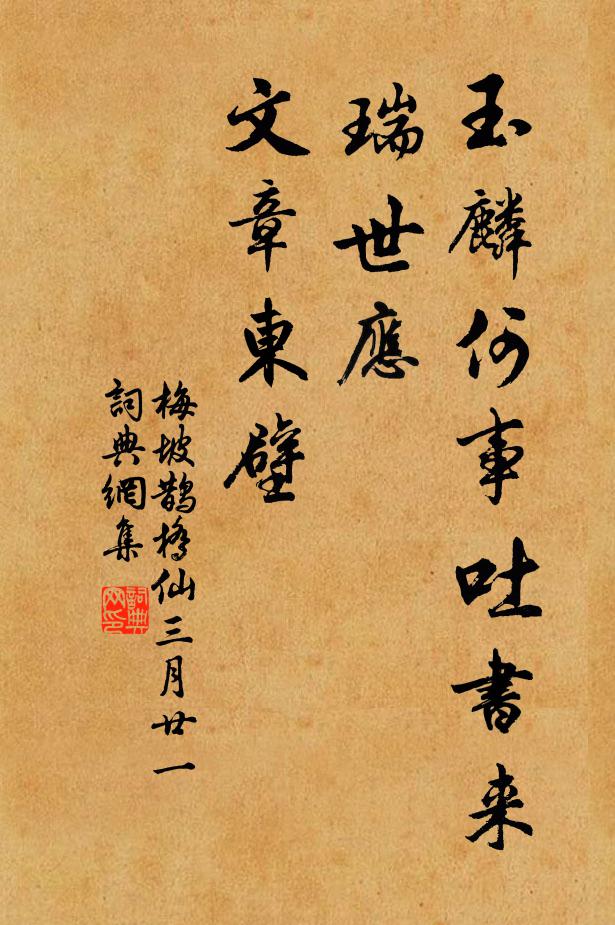 玉麟何事吐書来
瑞世應
文章東壁
梅坡鵲橋仙三月廿一
詞典網集
詞典網印